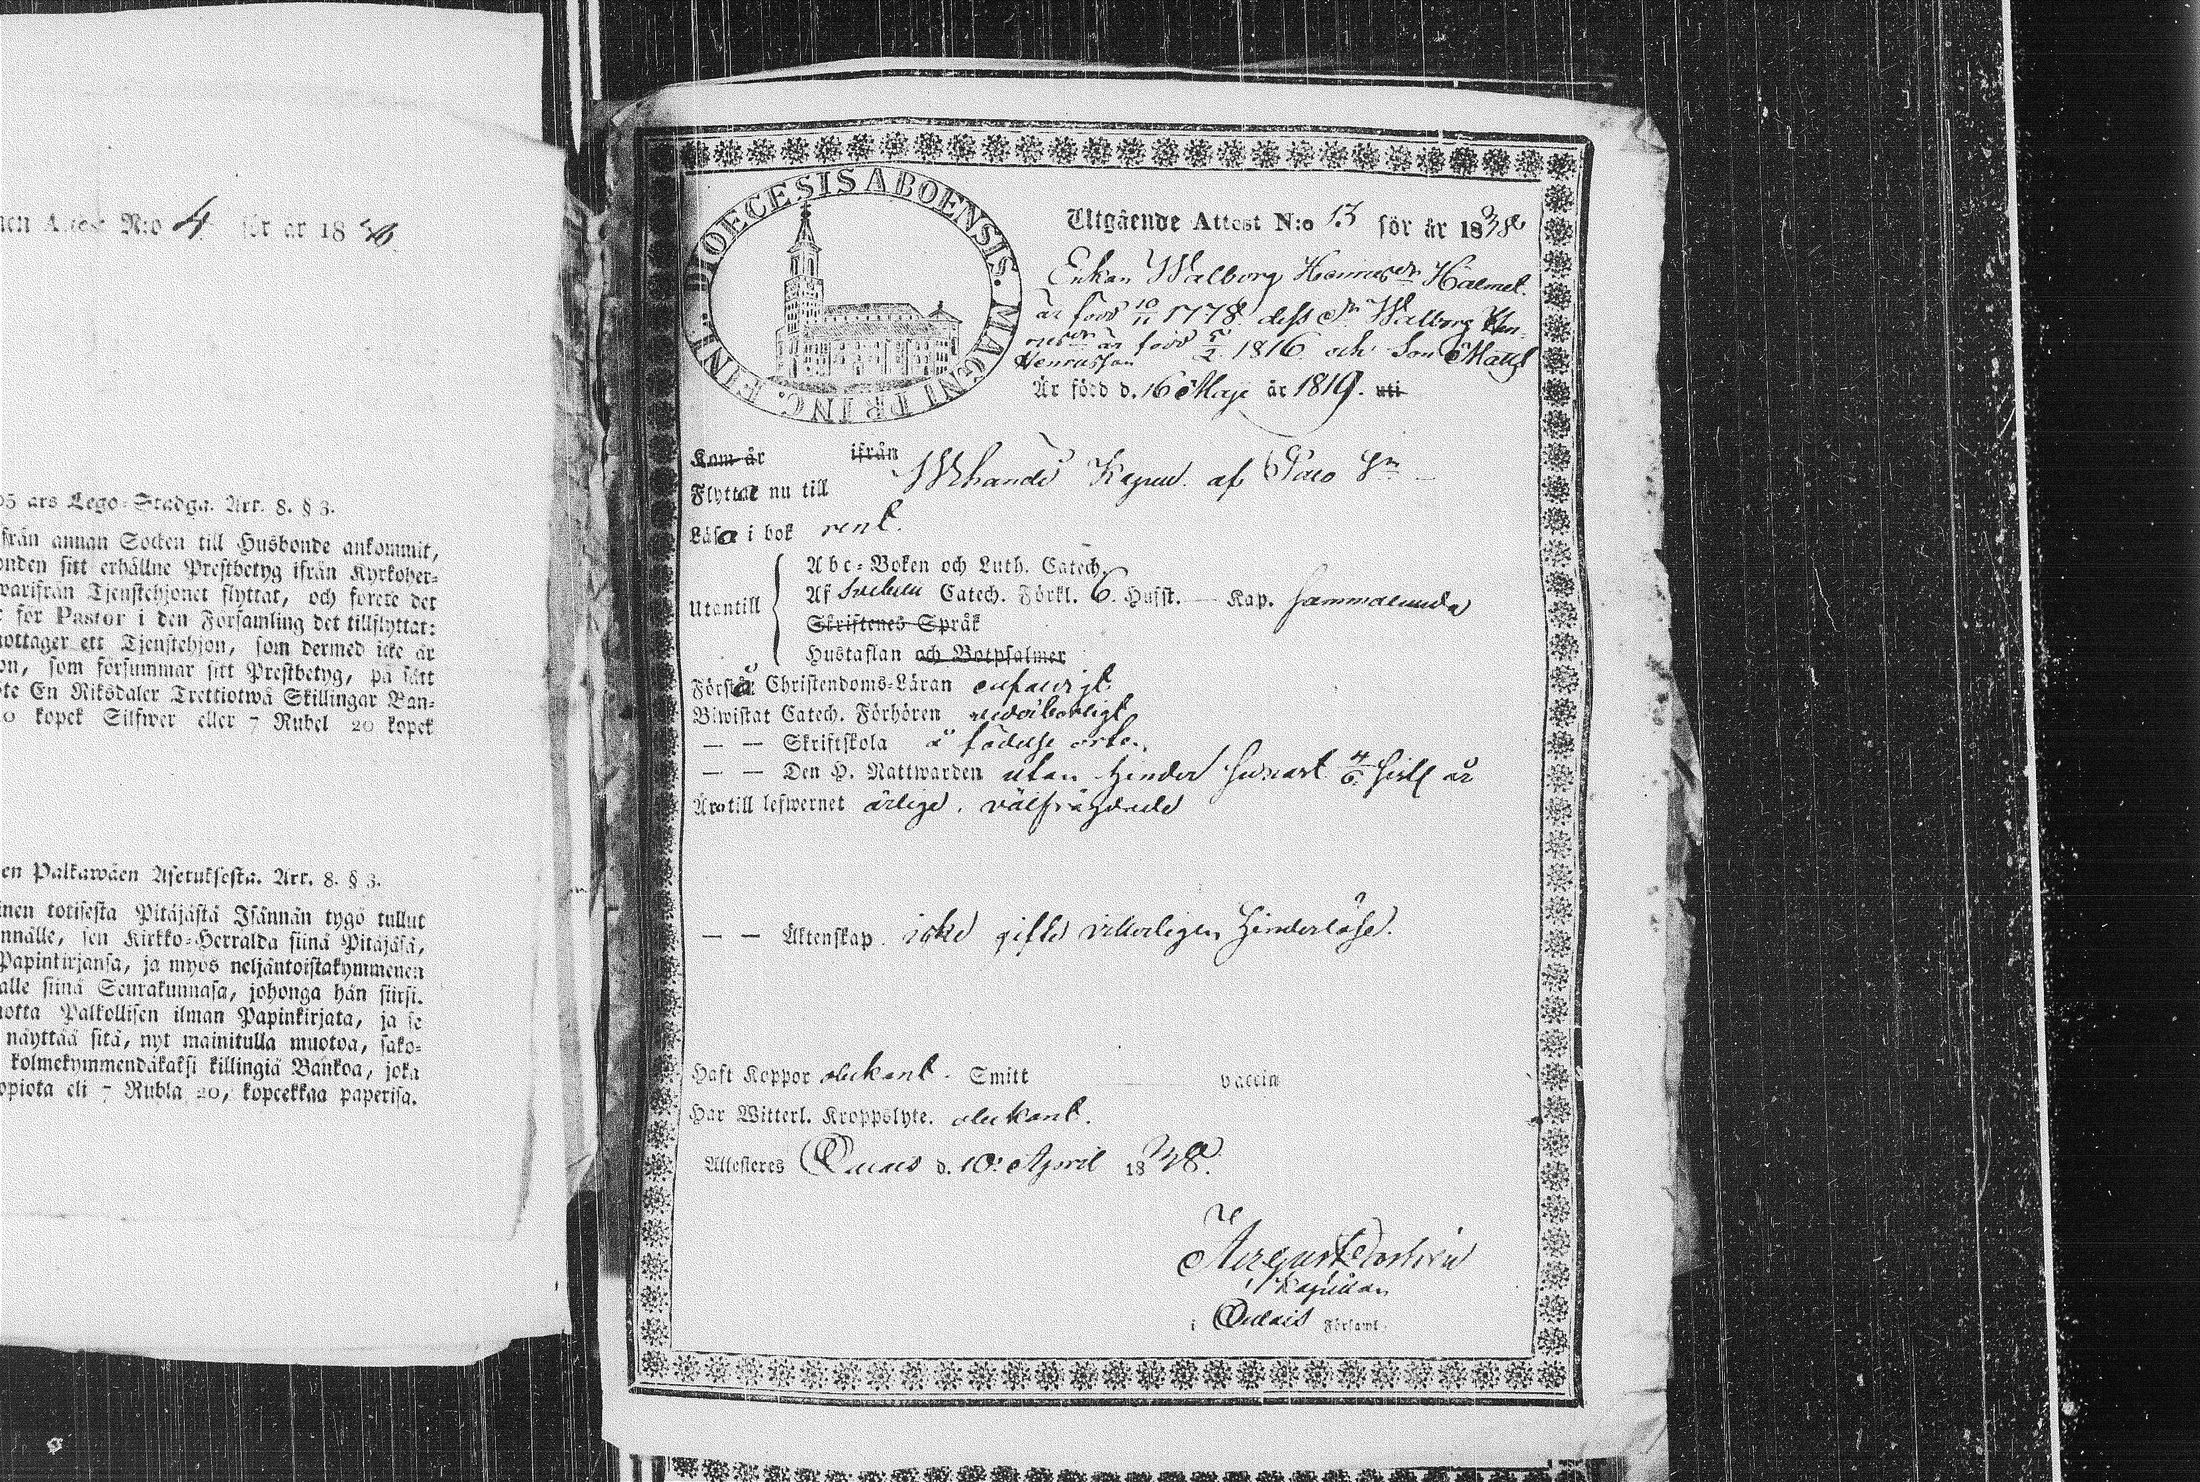 Attest N:o 4 för år 18
ars Lego-Stadga. Art. 8. § 3.
från annan Socken till Husbonde ankommit,
sitt erhållne Prestbetyg ifrån Kyrkoher-
Tjenstehjonet flyttat, och förete det
för Pastor i den Församling det tillflyttat:
mottager ett Tjenstehjon, som dermed icke är
som försummar sitt Prestbetyg, på sätt
En Riksdaler Trettiotwå Skillingar Ban-
kopek Silfwer eller 7 Rubel 20 kopek
Palkawäen Asetuksesta. Art. 8. § 3.
totisesta Pitäjästä Isännän tygö tullut
sen Kirkko-Herralda siinä Pitäjäsä,
Papinkirjansa, ja myös neljäntoistakymmenen
siinä Seurakunnasa, johonga hän siirsi.
Palkollisen ilman Papinkirjata, ja se
näyttää sitä, nyt mainitulla muotoa, sako-
kolmekymmendäkaksi killingiä Bankoa, joka
eli 7 Rubla 20, kopeekkaa paperisa.
DIOECESIS ABOENSIS. MAGNI PRINC. FINL.
Utgående Attest N:o 13 för år 1838
Enkan Walborg
är född 10/11 1778. dess Walborg Hen-
är född 5/2 1816 och Son Matts
Henricsson
Är född d. 16 Maji år 1819. uti
Kom år ifrån
Flyttar nu till Kapell af Pälo
Läsa i bok rent.
Utantill
Abc-Boken och Luth. Catech.
Af Svebelii Catech. Förkl. 6. Husst. — Kap. sammalunda
Skriftenes Språk
Hustaflan och Botpsalmer
Förstå Christendoms-Läran enfaldigt
Biwistat Catech. Förhören
— — Skriftskola å födelse orten.
— — Den H. Nattwarden utan hinder senast 4/6 sistl. år
Äro till lefwernet ärlige, välfrägdade
— — Äktenskap. icke gifte vitterligen hinderlöse.
Haft Koppor obekant. Smitt vaccin
Har Witterl. Kroppslyte. obekant.
Attesteras Oulais d. 10: April 1838.
August
Kapellan
i Oulais Församl.